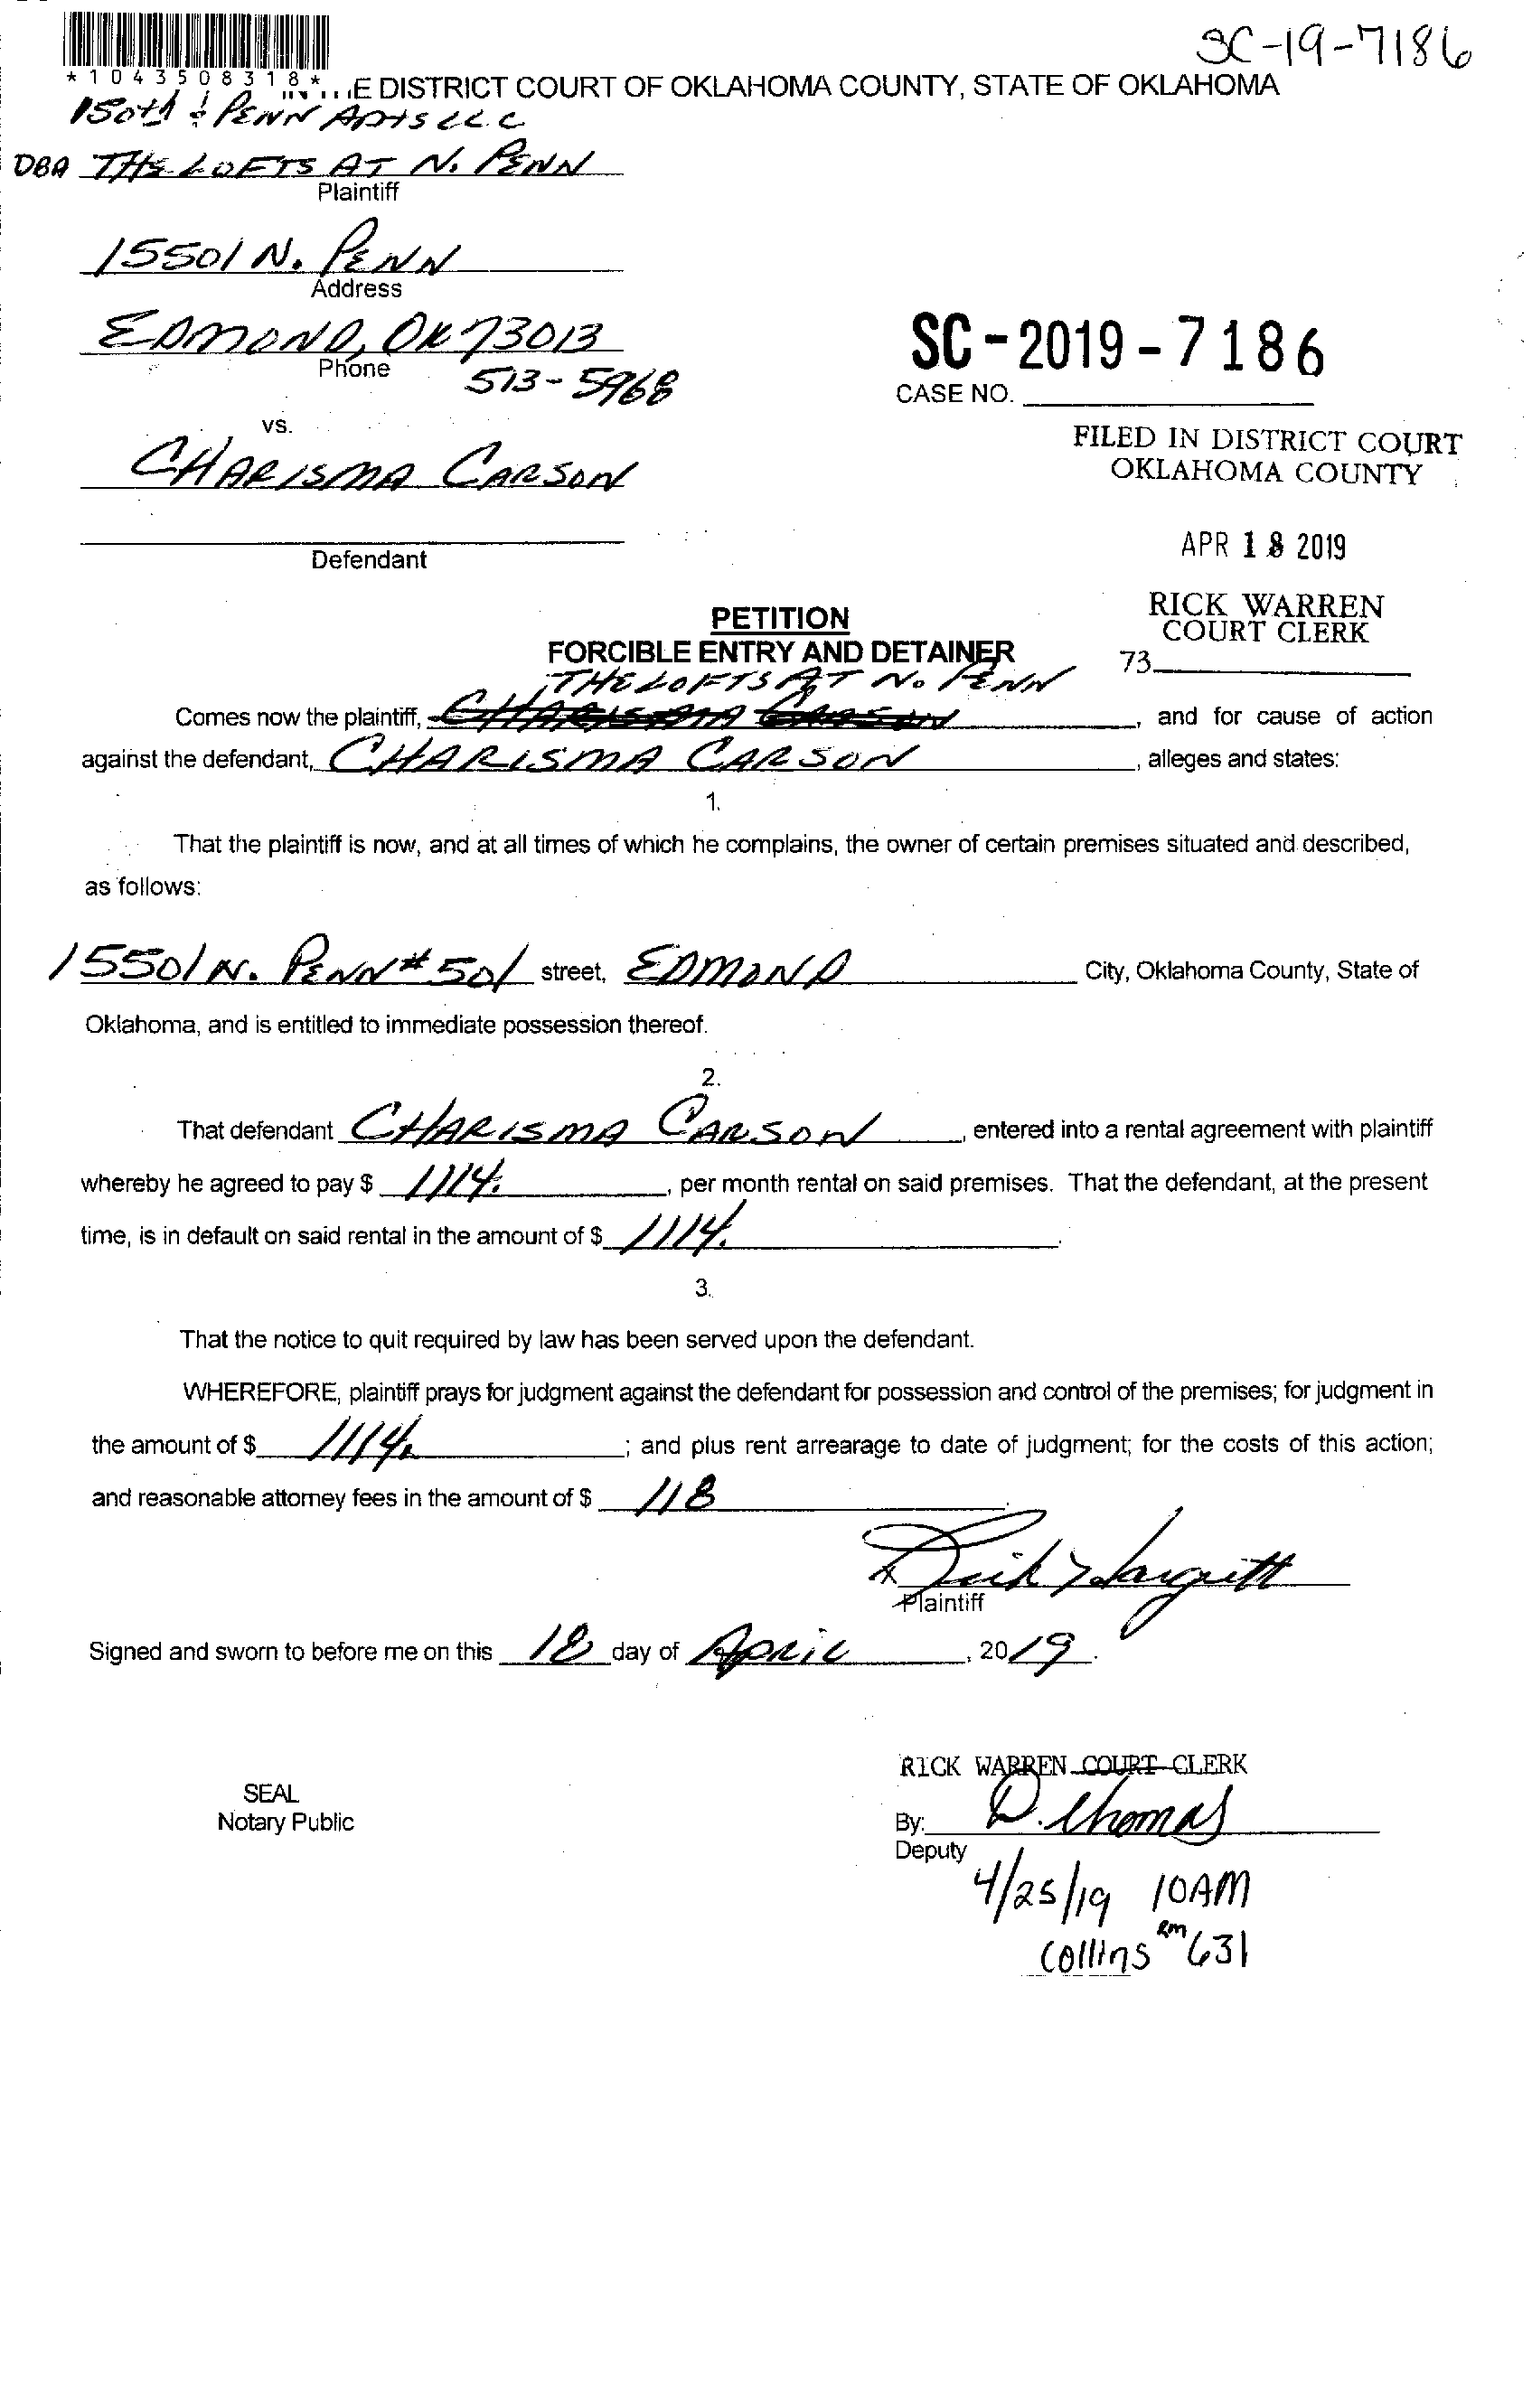 SC-19-7186
*1043508318*
E DISTRICT COURT OF OKLAHOMA COUNTY, STATE OF OKLAHOMA
150th & PENN APTS LLC
DBA THE LOFTS AT N. PENN
Plaintiff
15501 N. PENN
Address
EDMOND, OK 73013
Phone
513-5968
SC-2019-7186
CASE NO.
vs.
CHARISMA CARSON
Defendant
FILED IN DISTRICT COURT
OKLAHOMA COUNTY
APR 18 2019
RICK WARREN
COURT CLERK
73
PETITION
FORCIBLE ENTRY AND DETAINER
THE LOFTS AT N. PENN
Comes now the plaintiff, CHARISMA CARSON, and for cause of action
against the defendant, CHARISMA CARSON, alleges and states:
1.
That the plaintiff is now, and at all times of which he complains, the owner of certain premises situated and described,
as follows:
15501 N. PENN # 501 street, EDMOND City, Oklahoma County, State of
Oklahoma, and is entitled to immediate possession thereof.
2.
That defendant CHARISMA CARSON, entered into a rental agreement with plaintiff
whereby he agreed to pay $ 1114., per month rental on said premises. That the defendant, at the present
time, is in default on said rental in the amount of $ 1114.
3.
That the notice to quit required by law has been served upon the defendant.
WHEREFORE, plaintiff prays for judgment against the defendant for possession and control of the premises; for judgment in
the amount of $ 1114. ; and plus rent arrearage to date of judgment; for the costs of this action;
and reasonable attorney fees in the amount of $ 118.
Plaintiff
Signed and sworn to before me on this 18 day of APRIL, 2019.
SEAL
Notary Public
RICK WARREN COURT CLERK
By: D. Thomas
Deputy
4/25/19 10AM
Collins rm 631